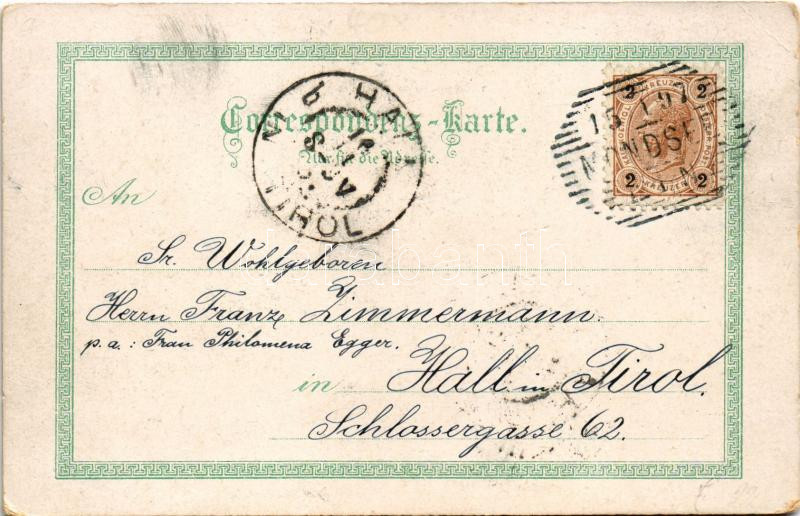 Correspondenz-Karte.
Nur für die Adresse.
An
Sr. Wohlgeboren
Herrn Franz Zimmermann.
p. a.: Frau Philomena Egger.
in Hall in Tirol.
Schlossergasse 62.
TIROL
2 KREUZER 2
2 KREUZER 2
MONDSEE